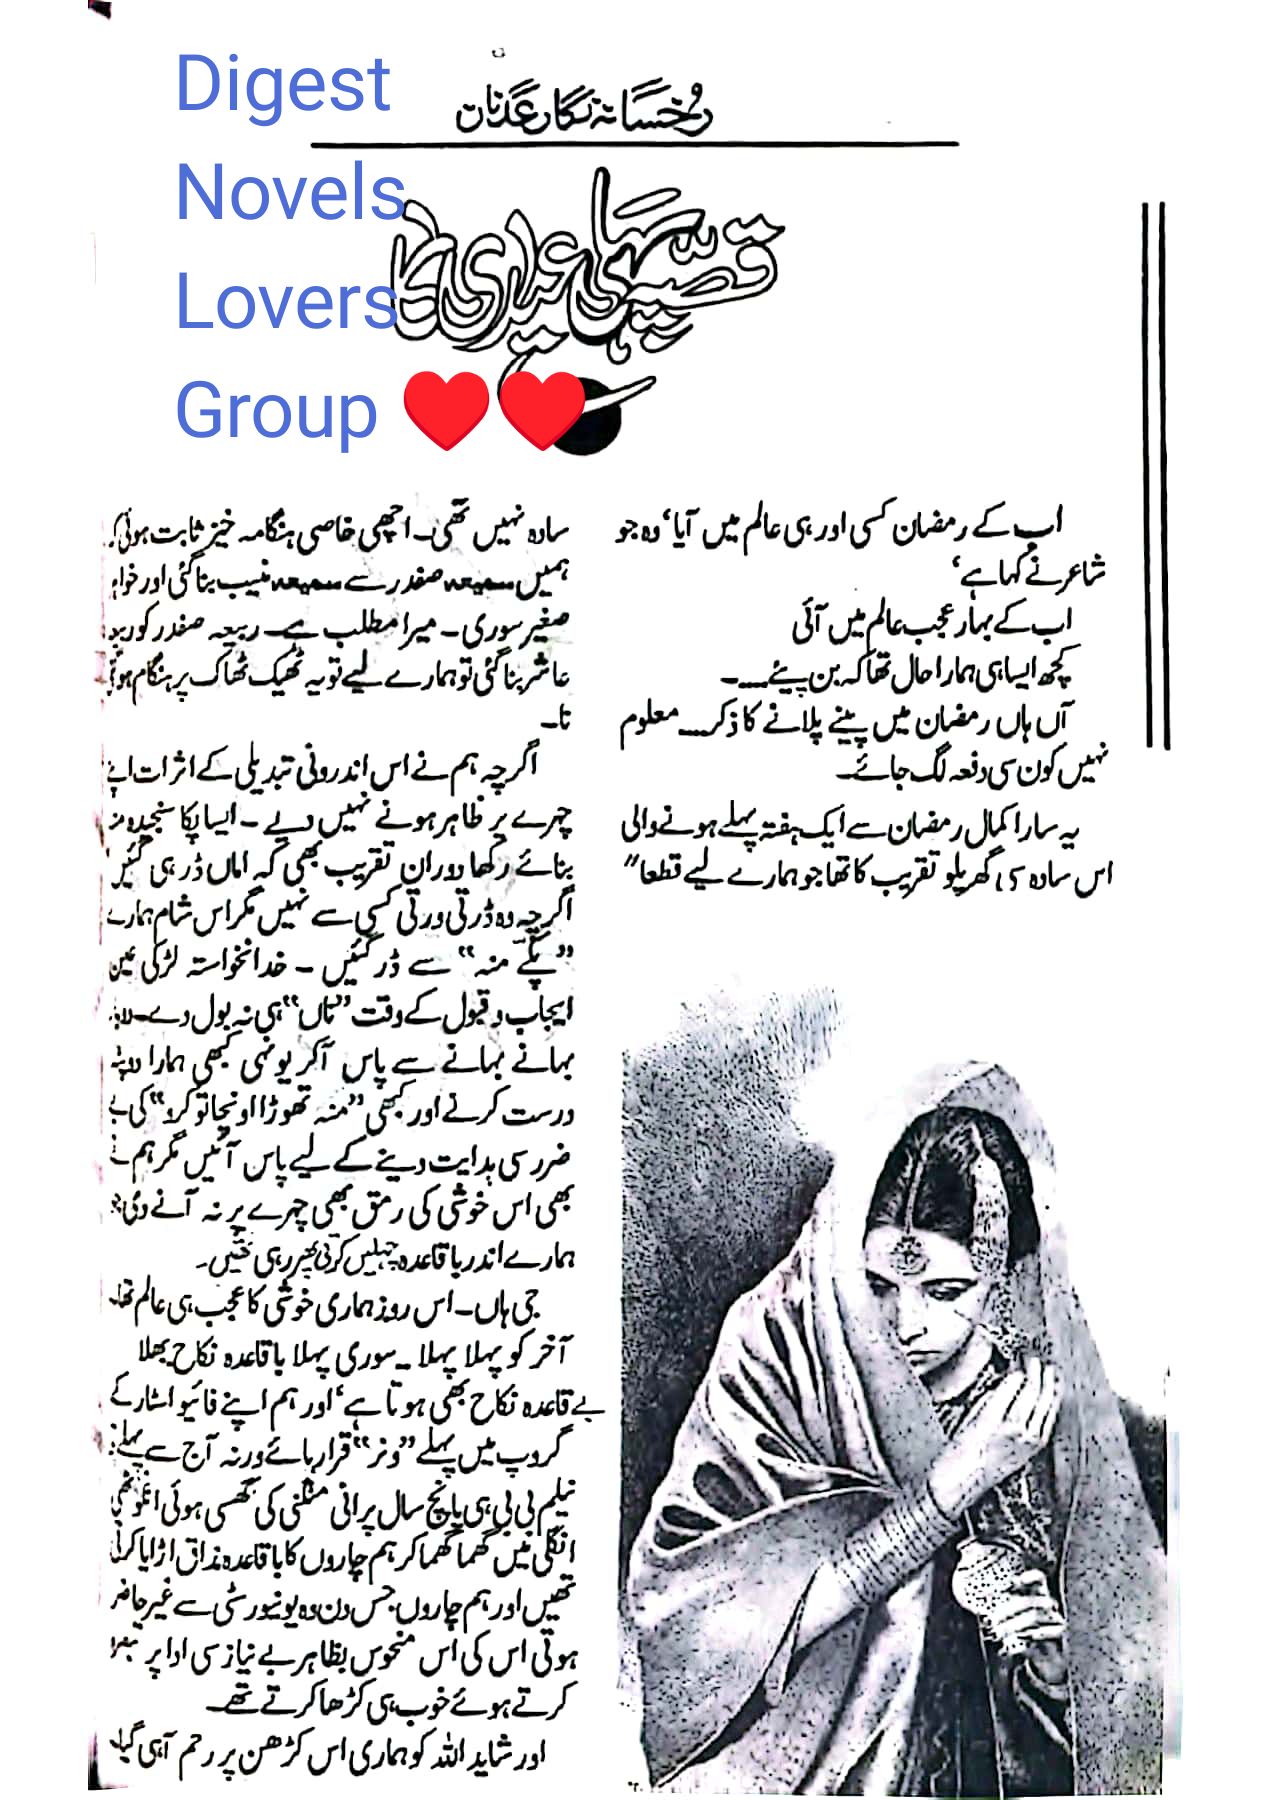 Digest
Novels
Lovers
Group ❤️❤️
رخسانہ نگار عدنان
قصہ پہلی عیدی کا
اب کے رمضان کسی اور ہی عالم میں آیا، وہ جو
شاعر نے کہا ہے،
اب کے بہار عجب عالم میں آئی
کچھ ایسا ہی ہمارا حال تھا کہ بن پئے۔۔۔۔
آں ہاں رمضان میں پینے پلانے کا ذکر۔۔۔ معلوم
نہیں کون سی دفعہ لگ جائے۔
یہ سارا کمال رمضان سے ایک ہفتہ پہلے ہونے والی
اس سادہ سی گھریلو تقریب کا تھا جو ہمارے لیے قطعاً"
سادہ نہیں تھی۔ اچھی خاصی ہنگامہ خیز ثابت ہوئی
ہمیں سمیعہ صفدر سے سمیعہ منیب بنا گئی اور
صغیر سوری۔ میرا مطلب ہے۔ ربیعہ صفدر کو
عاشر بنا گئی تو ہمارے لیے تو یہ ٹھیک ٹھاک پر ہنگام ہوا
نا۔
اگرچہ ہم نے اس اندرونی تبدیلی کے اثرات اپنے
چہرے پر ظاہر ہونے نہیں دیے۔ ایسا پکا سنجیدہ
بنائے رکھا دوران تقریب بھی کہ اماں ڈر ہی گئیں
اگرچہ وہ ڈرتی ورتی کسی سے نہیں مگر اس شام ہمارے
"پکے منہ" سے ڈر گئیں۔ خدانخواستہ لڑکی عین
ایجاب و قبول کے وقت "ناں" ہی نہ بول دے۔
بہانے بہانے سے پاس آکر یونہی کبھی ہمارا دوپٹہ
درست کرنے اور کبھی "منہ تھوڑا اونچا تو کرو" کی بے
ضرر سی ہدایت دینے کے لیے پاس آئیں مگر ہم نے
بھی اس خوشی کی رمق بھی چہرے پر نہ آنے دی
ہمارے اندر باقاعدہ چہلیں کرتی پھر رہی تھیں۔
جی ہاں۔ اس روز ہماری خوشی کا عجب ہی عالم تھا۔
آخر کو پہلا پہلا۔ سوری پہلا باقاعدہ نکاح بھلا
بے قاعدہ نکاح بھی ہوتا ہے، اور ہم اپنے فائیو اسٹار کے
گروپ میں پہلے "ونر" قرار پائے ورنہ آج سے پہلے
نیلم بی بی ہی پانچ سال پرانی منگنی کی گھسی ہوئی انگوٹھی
انگلی میں گھما گھما کر ہم چاروں کا باقاعدہ مذاق اڑایا کرتی
تھیں اور ہم چاروں جس دن وہ یونیورسٹی سے غیر حاضر
ہوتی اس کی اس منحوس بظاہر بے نیاز سی ادا پر
کرتے ہوئے خوب ہی کڑھا کرتے تھے۔
اور شاید اللہ کو ہماری اس کڑھن پر رحم آ ہی گیا۔